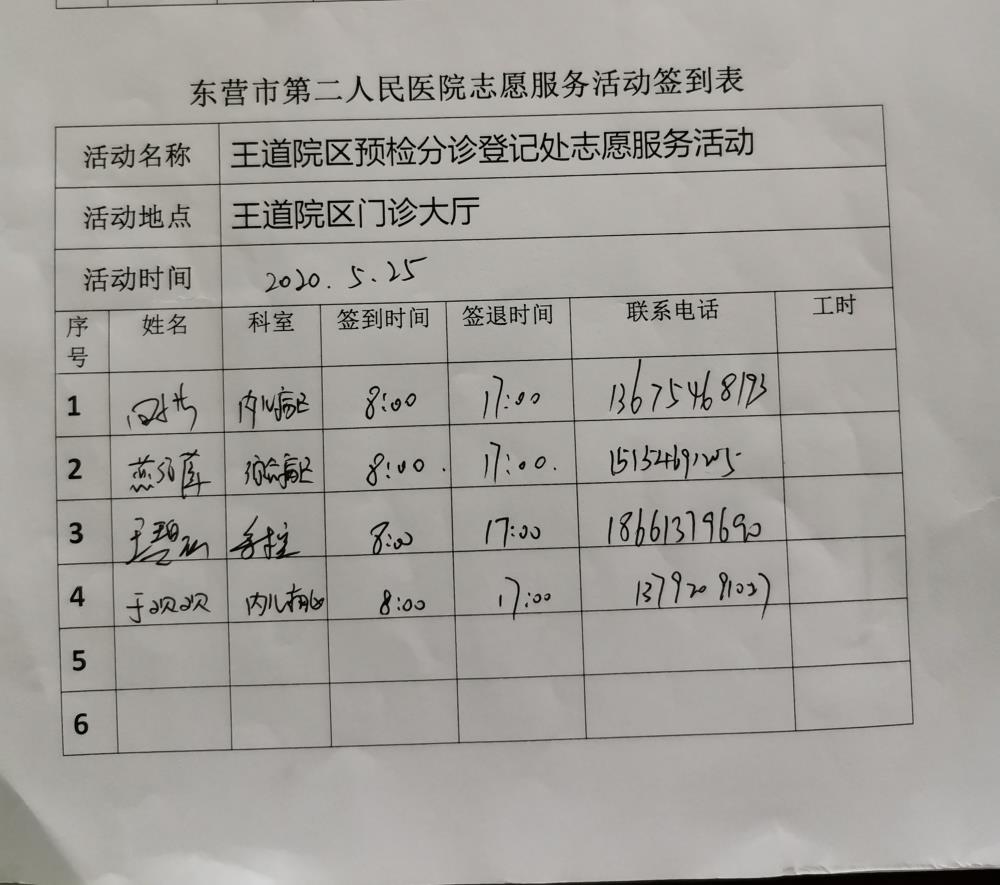 东营市第二人民医院志愿服务活动签到表
活动名称 王道院区预检分诊登记处志愿服务活动
活动地点 王道院区门诊大厅
活动时间 2020.5.25
序号 姓名 科室 签到时间 签退时间 联系电话 工时
1 内儿病区 8:00 17:00 13675468193
2 8:00. 17:00.
3 8:00 17:00 18661379690
4 于欢欢 内儿病区 8:00 17:00 13792091027
5
6